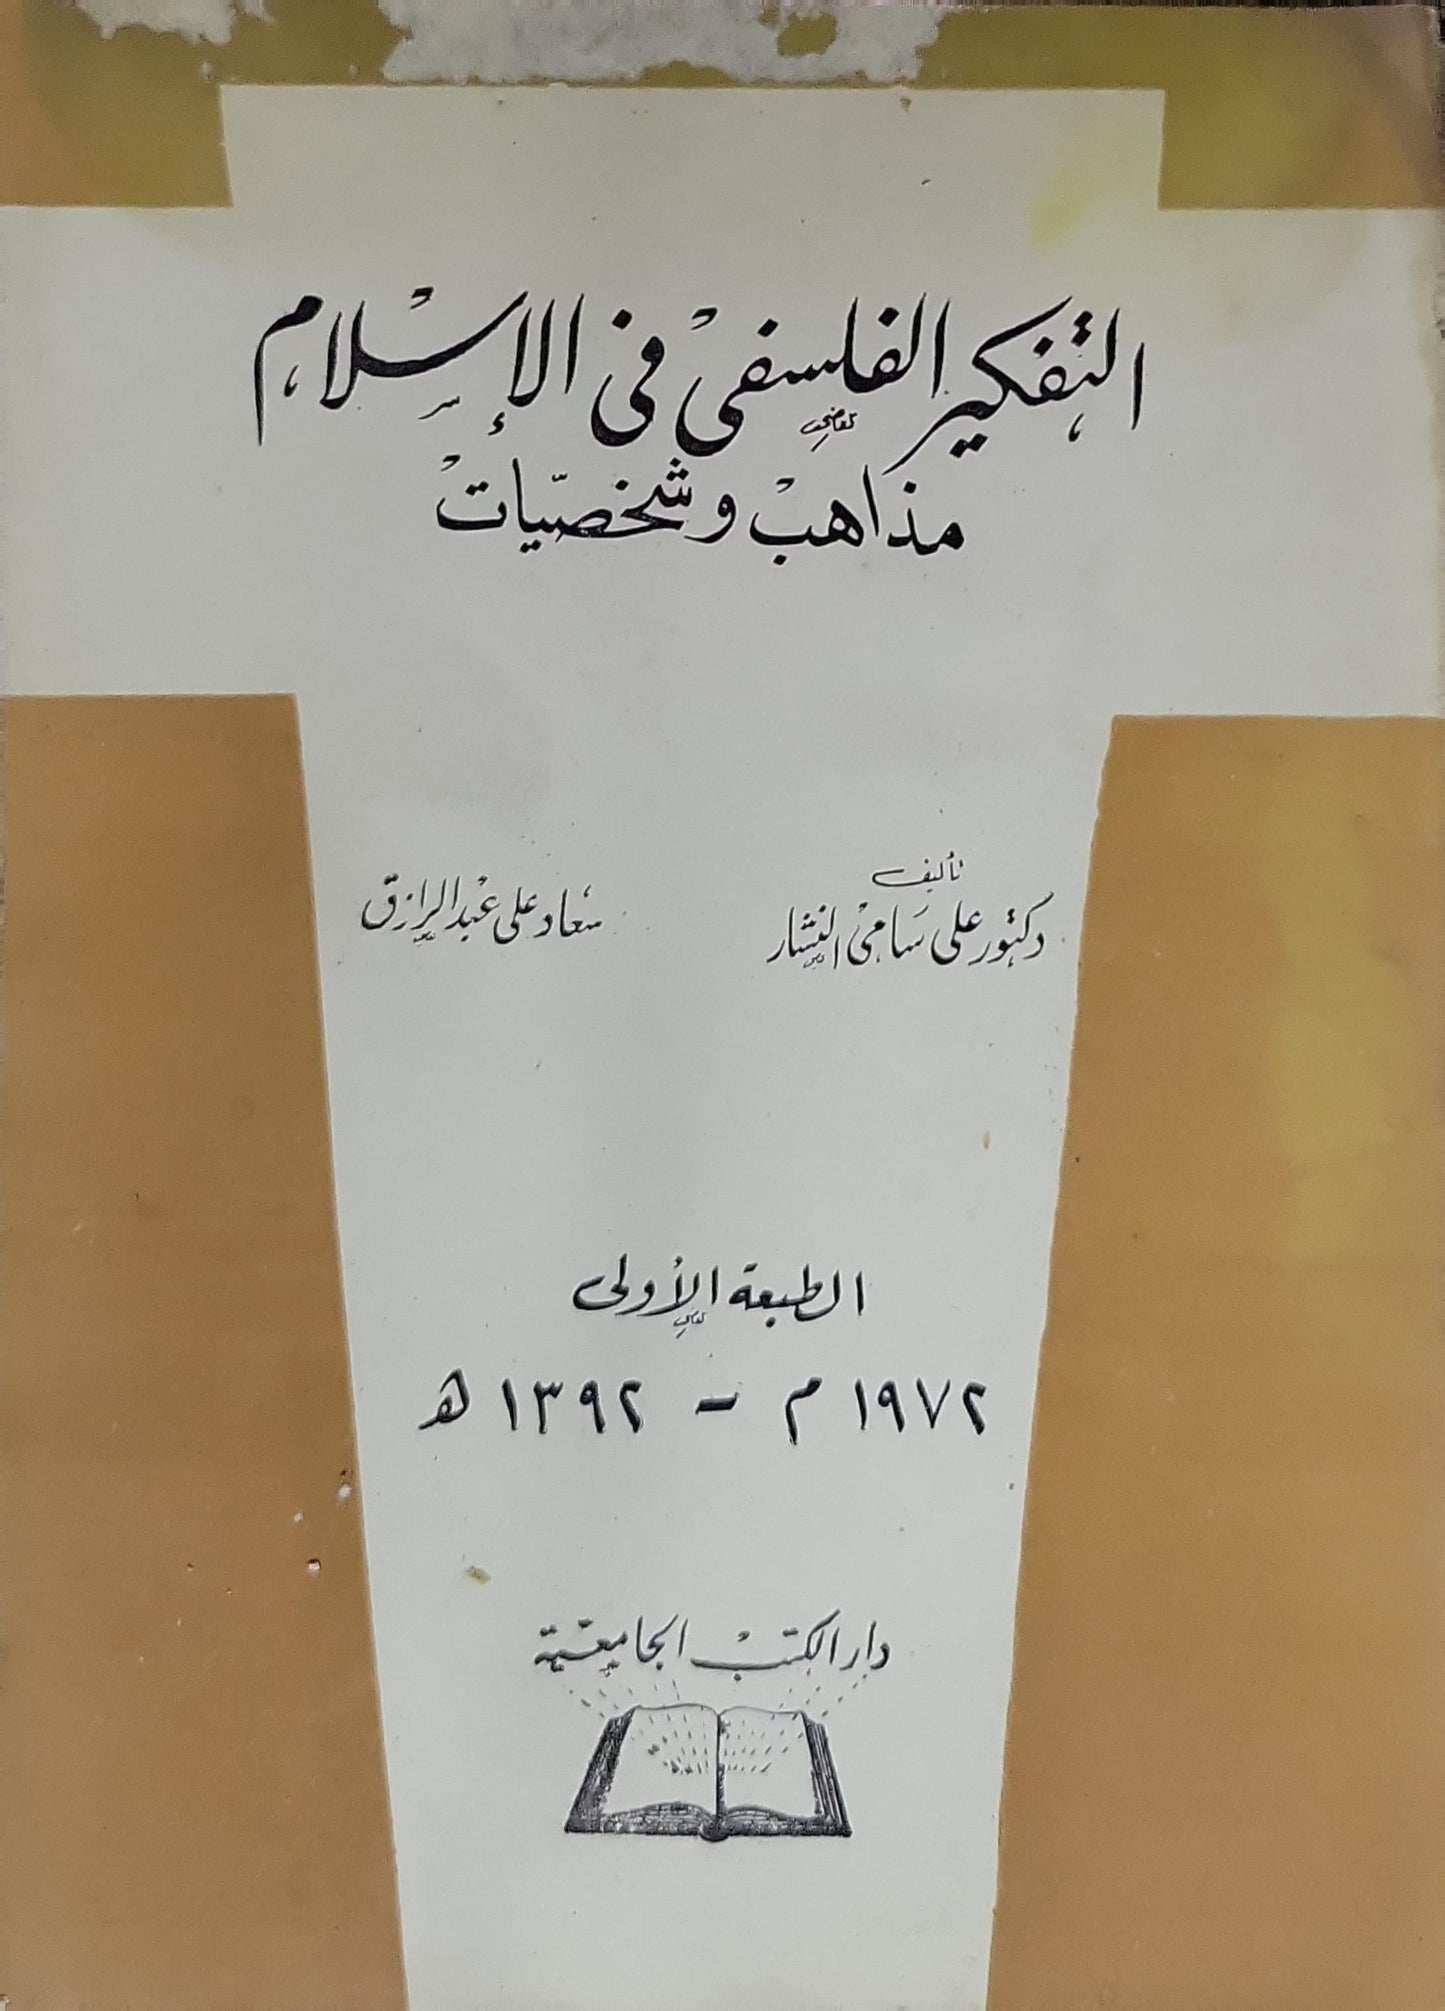 التفكير الفلسفى فى الإسلام
مذاهب وشخصيّات
تأليف
دكتور على سامى النشار
سعاد على عبد الرازق
الطبعة الأولى
١٩٧٢ م - ١٣٩٢ هـ
دار الكتب الجامعيّة